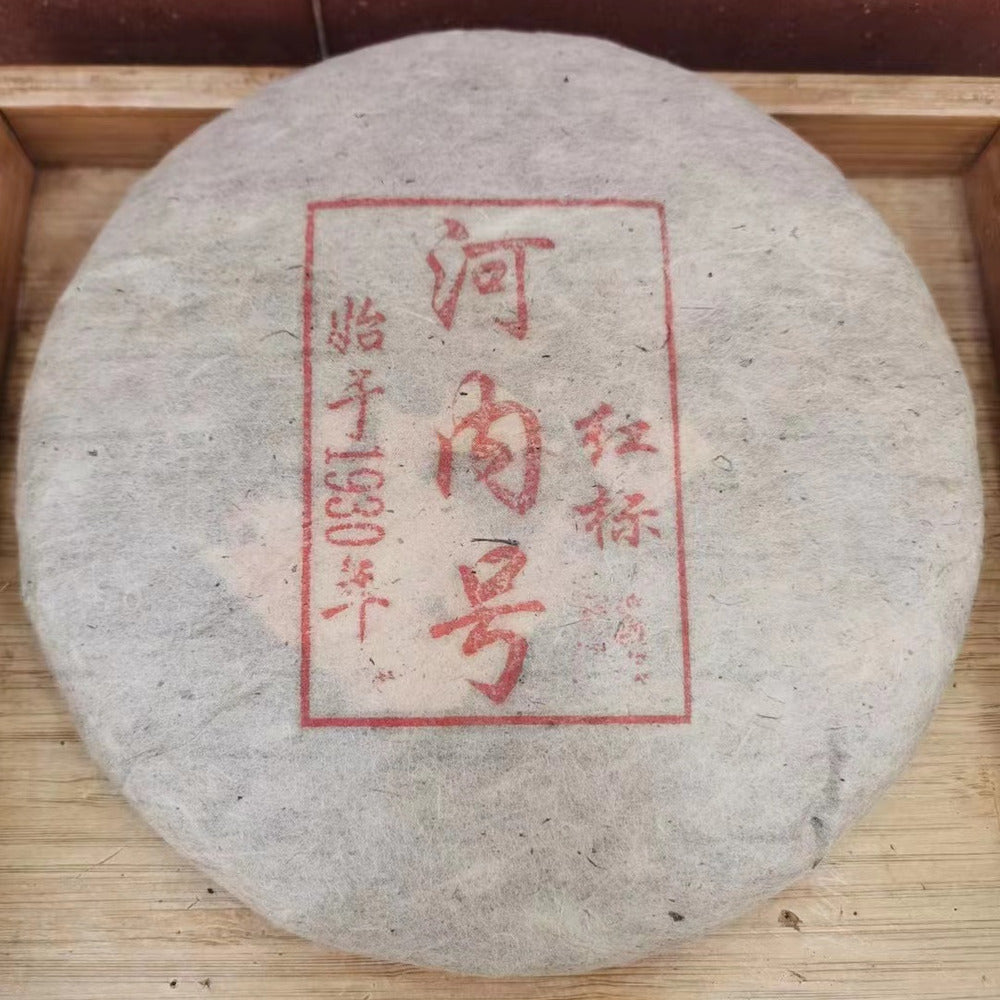 河内号
红标
始于1930年